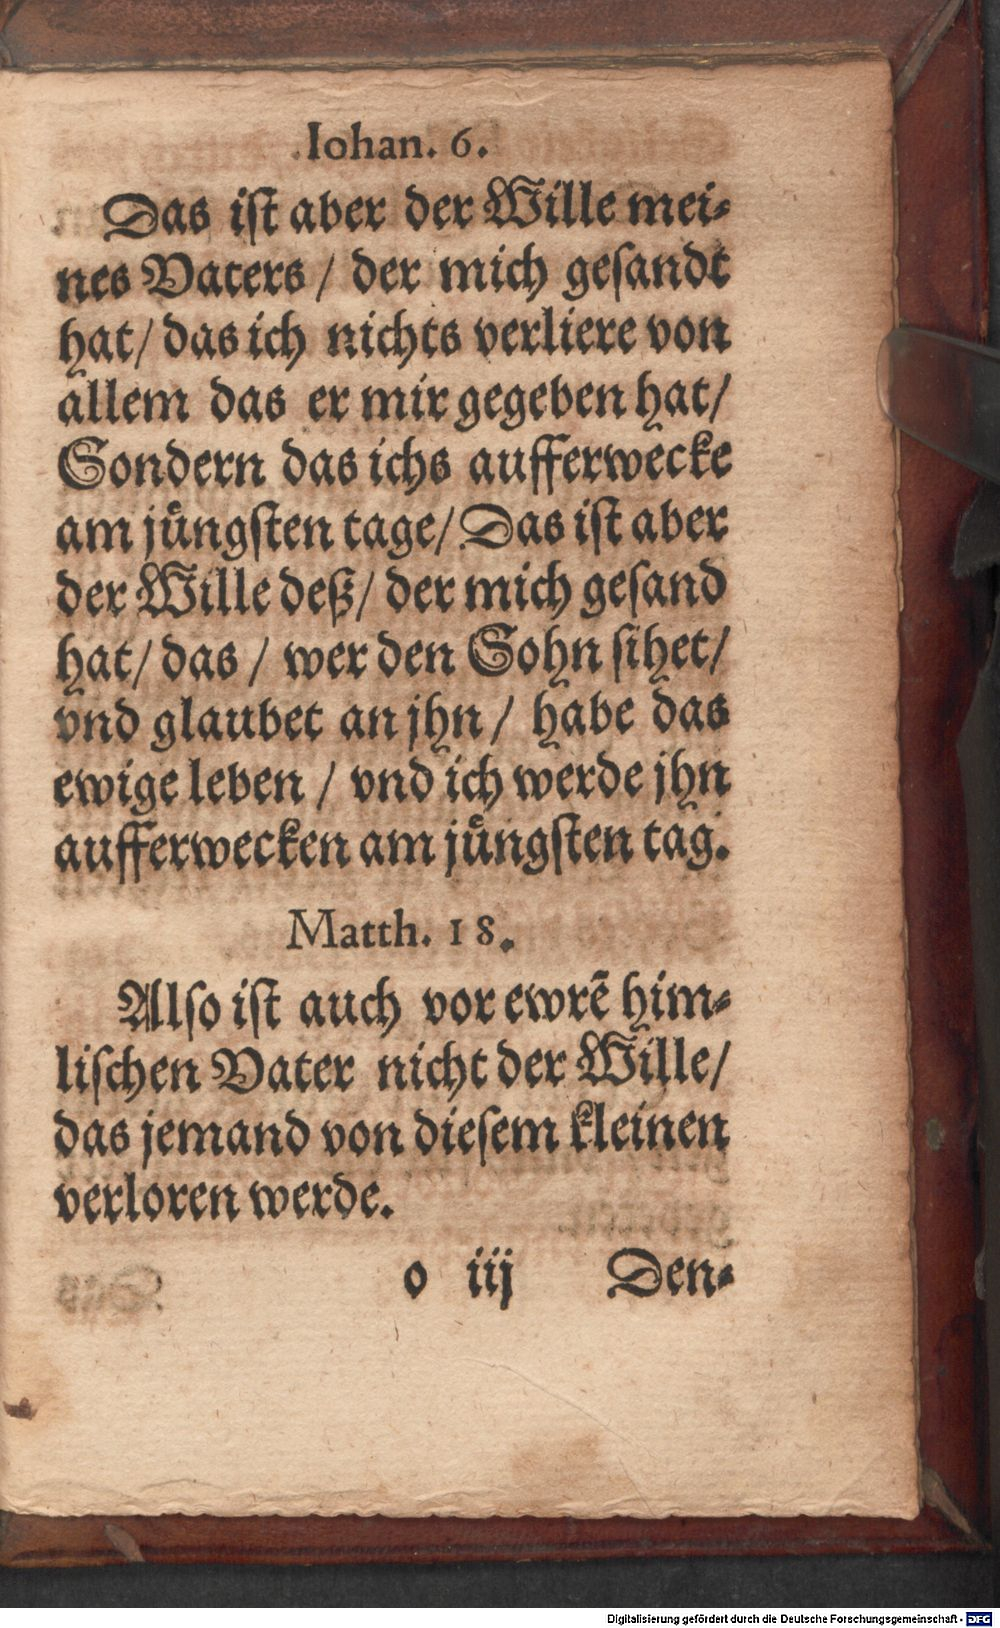 Iohan. 6.
Das ist aber der Wille mei-
nes Vaters / der mich gesandt
hat / das ich nichts verliere von
allem das er mir gegeben hat /
Sondern das ichs aufferwecke
am jüngsten tage / Das ist aber
der Wille deß / der mich gesand
hat / das / wer den Sohn sihet /
vnd glaubet an jhn / habe das
ewige leben / vnd ich werde jhn
aufferwecken am jüngsten tag.
Matth. 18.
Also ist auch vor ewrẽ him-
lischen Vater nicht der Wille /
das jemand von diesem kleinen
verloren werde.
o iij Den-
Digitalisierung gefördert durch die Deutsche Forschungsgemeinschaft - DFG